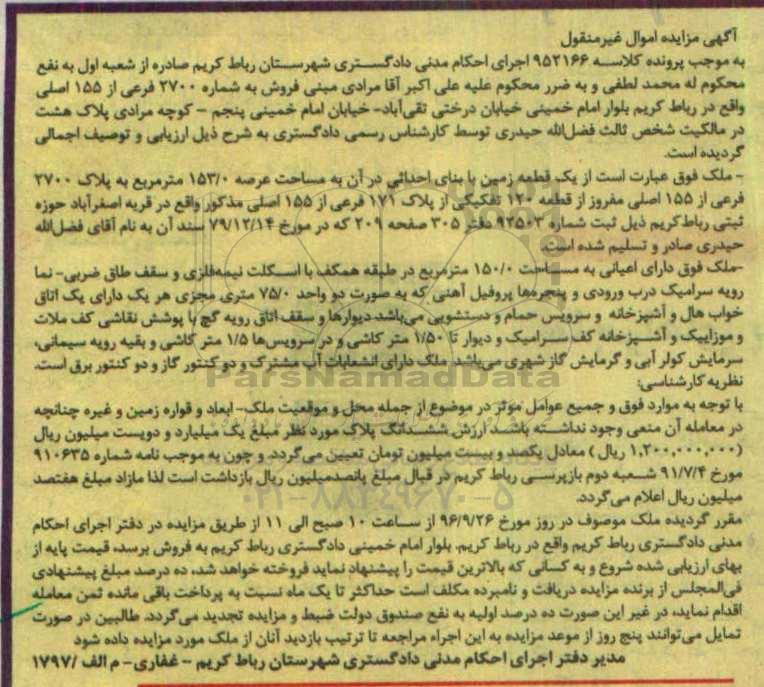 آگهی مزایده اموال غیرمنقول
به موجب پرونده کلاسه ۹۵۲۱۶۶ اجرای احکام مدنی دادگستری شهرستان رباط کریم صادره از شعبه اول به نفع
محکوم له محمد لطفی و به ضرر محکوم علیه علی اکبر آقا مرادی مبنی فروش به شماره ۲۷۰۰ فرعی از ۱۵۵ اصلی
واقع در رباط کریم بلوار امام خمینی خیابان درختی تقی‌آباد- خیابان امام خمینی پنجم – کوچه مرادی پلاک هشت
در مالکیت شخص ثالث فضل‌الله حیدری توسط کارشناس رسمی دادگستری به شرح ذیل ارزیابی و توصیف اجمالی
گردیده است.
- ملک فوق عبارت است از یک قطعه زمین با بنای احداثی در آن به مساحت عرصه ۱۵۳/۰ مترمربع به پلاک ۲۷۰۰
فرعی از ۱۵۵ اصلی مفروز از قطعه ۱۲۰ تفکیکی از پلاک ۱۷۱ فرعی از ۱۵۵ اصلی مذکور واقع در قریه اصغرآباد حوزه
ثبتی رباط‌کریم ذیل ثبت شماره ۹۳۵۰۳ دفتر ۳۰۵ صفحه ۲۰۹ که در مورخ ۷۹/۱۲/۱۴ سند آن به نام آقای فضل‌الله
حیدری صادر و تسلیم شده است.
-ملک فوق دارای اعیانی به مساحت ۱۵۰/۰ مترمربع در طبقه همکف با اسکلت نیمه‌فلزی و سقف طاق ضربی- نما
رویه سرامیک درب ورودی و پنجره‌ها پروفیل آهنی که به صورت دو واحد ۷۵/۰ متری مجزی هر یک دارای یک اتاق
خواب هال و آشپزخانه و سرویس حمام و دستشویی می‌باشد. دیوارها و سقف اتاق رویه گچ با پوشش نقاشی کف ملات
و موزاییک و آشپزخانه کف سرامیک و دیوار تا ۱/۵۰ متر کاشی و در سرویس‌ها ۱/۵ متر کاشی و بقیه رویه سیمانی،
سرمایش کولر آبی و گرمایش گاز شهری می‌باشد. ملک دارای انشعابات آب مشترک و دو کنتور گاز و دو کنتور برق است.
نظریه کارشناسی:
با توجه به موارد فوق و جمیع عوامل موثر در موضوع از جمله محل و موقعیت ملک- ابعاد و قواره زمین و غیره چنانچه
در معامله آن منعی وجود نداشته باشد ارزش ششدانگ پلاک مورد نظر مبلغ یک میلیارد و دویست میلیون ریال
(۱,۲۰۰,۰۰۰,۰۰۰ ریال ) معادل یکصد و بیست میلیون تومان تعیین می‌گردد. و چون به موجب نامه شماره ۹۱۰۶۳۵
مورخ ۹۱/۷/۴ شعبه دوم بازپرسی رباط کریم در قبال مبلغ پانصدمیلیون ریال بازداشت است لذا مازاد مبلغ هفتصد
میلیون ریال اعلام می‌گردد.
مقرر گردیده ملک موصوف در روز مورخ ۹۶/۹/۲۶ از ساعت ۱۰ صبح الی ۱۱ از طریق مزایده در دفتر اجرای احکام
مدنی دادگستری رباط کریم واقع در رباط کریم. بلوار امام خمینی دادگستری رباط کریم به فروش برسد، قیمت پایه از
بهای ارزیابی شده شروع و به کسانی که بالاترین قیمت را پیشنهاد نماید فروخته خواهد شد، ده درصد مبلغ پیشنهادی
فی‌المجلس از برنده مزایده دریافت و نامبرده مکلف است حداکثر تا یک ماه نسبت به پرداخت باقی مانده ثمن معامله
اقدام نماید، در غیر این صورت ده درصد اولیه به نفع صندوق دولت ضبط و مزایده تجدید می‌گردد. طالبین در صورت
تمایل می‌توانند پنج روز از موعد مزایده به این اجراء مراجعه تا ترتیب بازدید آنان از ملک مورد مزایده داده شود
مدیر دفتر اجرای احکام مدنی دادگستری شهرستان رباط کریم – غفاری- م الف /۱۷۹۷
ParsNamadData
۰۲۱-۸۸۳۴۹۶۷۰-۵